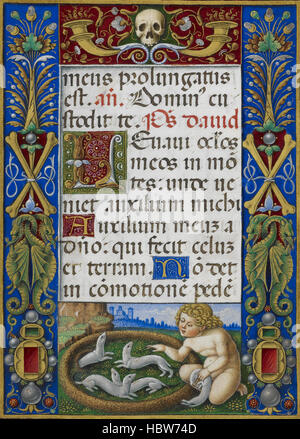 meus prolungatus
est. an̄. Dominꝰ cu
stodit te. Ps̄ dauid
Leuaui oc̄los
meos in mō
tes. unde ue
niet auxilium michi
Auxilium meuz a
dn̄o. qui fecit celuz
et terram. Nō det
in cōmotionē pedē
HBW74D